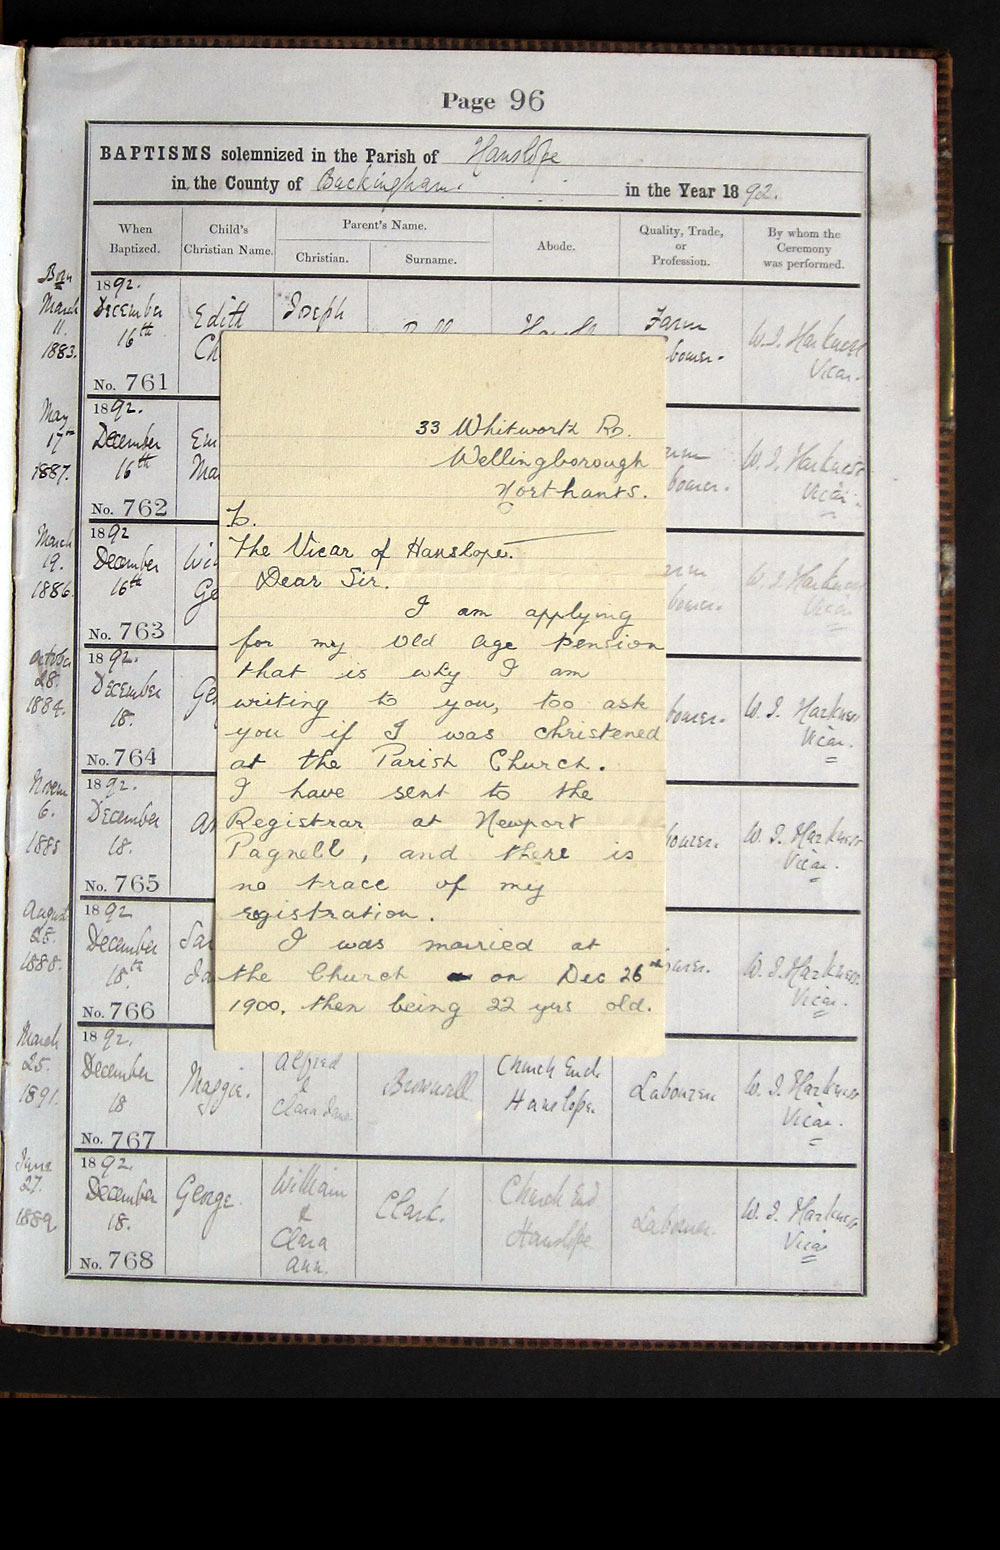 Page 96
BAPTISMS solemnized in the Parish of Hanslope
in the County of Buckingham. in the Year 1892.
When Baptized.
Child's Christian Name.
Parent's Name.
Christian.
Surname.
Abode.
Quality, Trade, or Profession.
By whom the Ceremony was performed.
Born
March
11.
1883.
1892.
December
16th
No. 761
Edith
Ch
Joseph
Farm
bourer.
W. J. Harkness
Vicar.
May
17th
1887.
1892.
December
16th
No. 762
Em
Ma
bourer.
W. J. Harkness
Vicar.
March
19.
1886.
1892
December
16th
No. 763
Ge
bourer.
W. J. Harkness
Vicar
October
28.
1884.
1892.
December
18.
No. 764
Ge
bourer.
W. J. Harkness
Vicar.
Novem
6.
1885
1892.
December
18.
No. 765
W. J. Harkness
Vicar.
August
25.
1888.
1892
December
18th
No. 766
W. J. Harkness
Vicar.
33 Whitworth Rd.
Wellingborough
Northants.
To.
The Vicar of Hanslope.
Dear Sir.
I am applying
for my old age pension
that is why I am
writing to you, too ask
you if I was christened
at the Parish Church.
I have sent to the
Registrar at Newport
Pagnell, and there is
no trace of my
registration.
I was married at
the Church on Dec 26nd
1900. then being 22 yrs old.
March
25.
1891.
1892.
December
18
No. 767
Maggie.
Alfred
&
Clara Jane
Brownsell
Church End.
Hanslope.
Labourer
W. J. Harkness
Vicar.
June
27.
1889.
1892.
December
18.
No. 768
George.
William
&
Clara
Ann.
Clark.
Church End
Hanslope
Labourer.
W. J. Harkness
Vicar